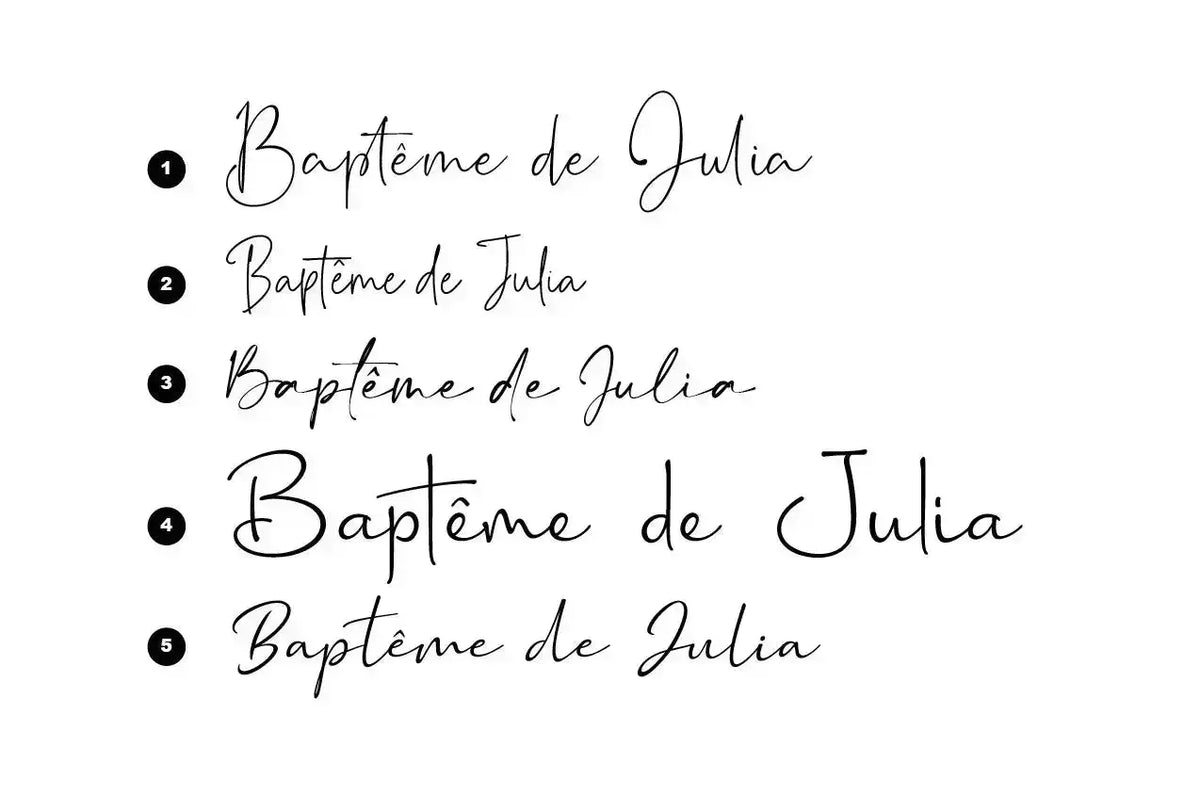 1 Baptême de Julia
2 Baptême de Julia
3 Baptême de Julia
4 Baptême de Julia
5 Baptême de Julia